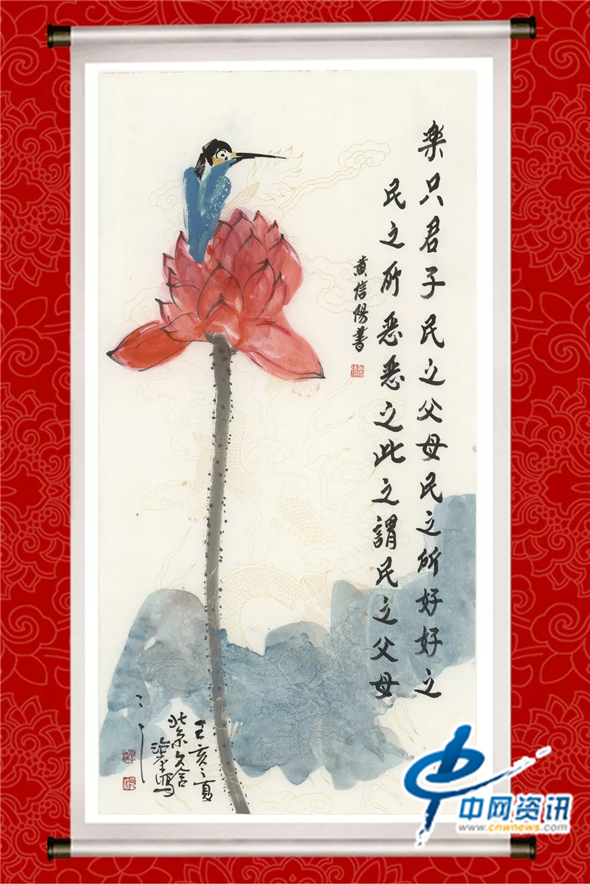 楽只君子民之父母民之所好好之
民之所恶恶之此之謂民之父母
黄信陽書
己亥之夏
中网资讯
www.cnwnews.com